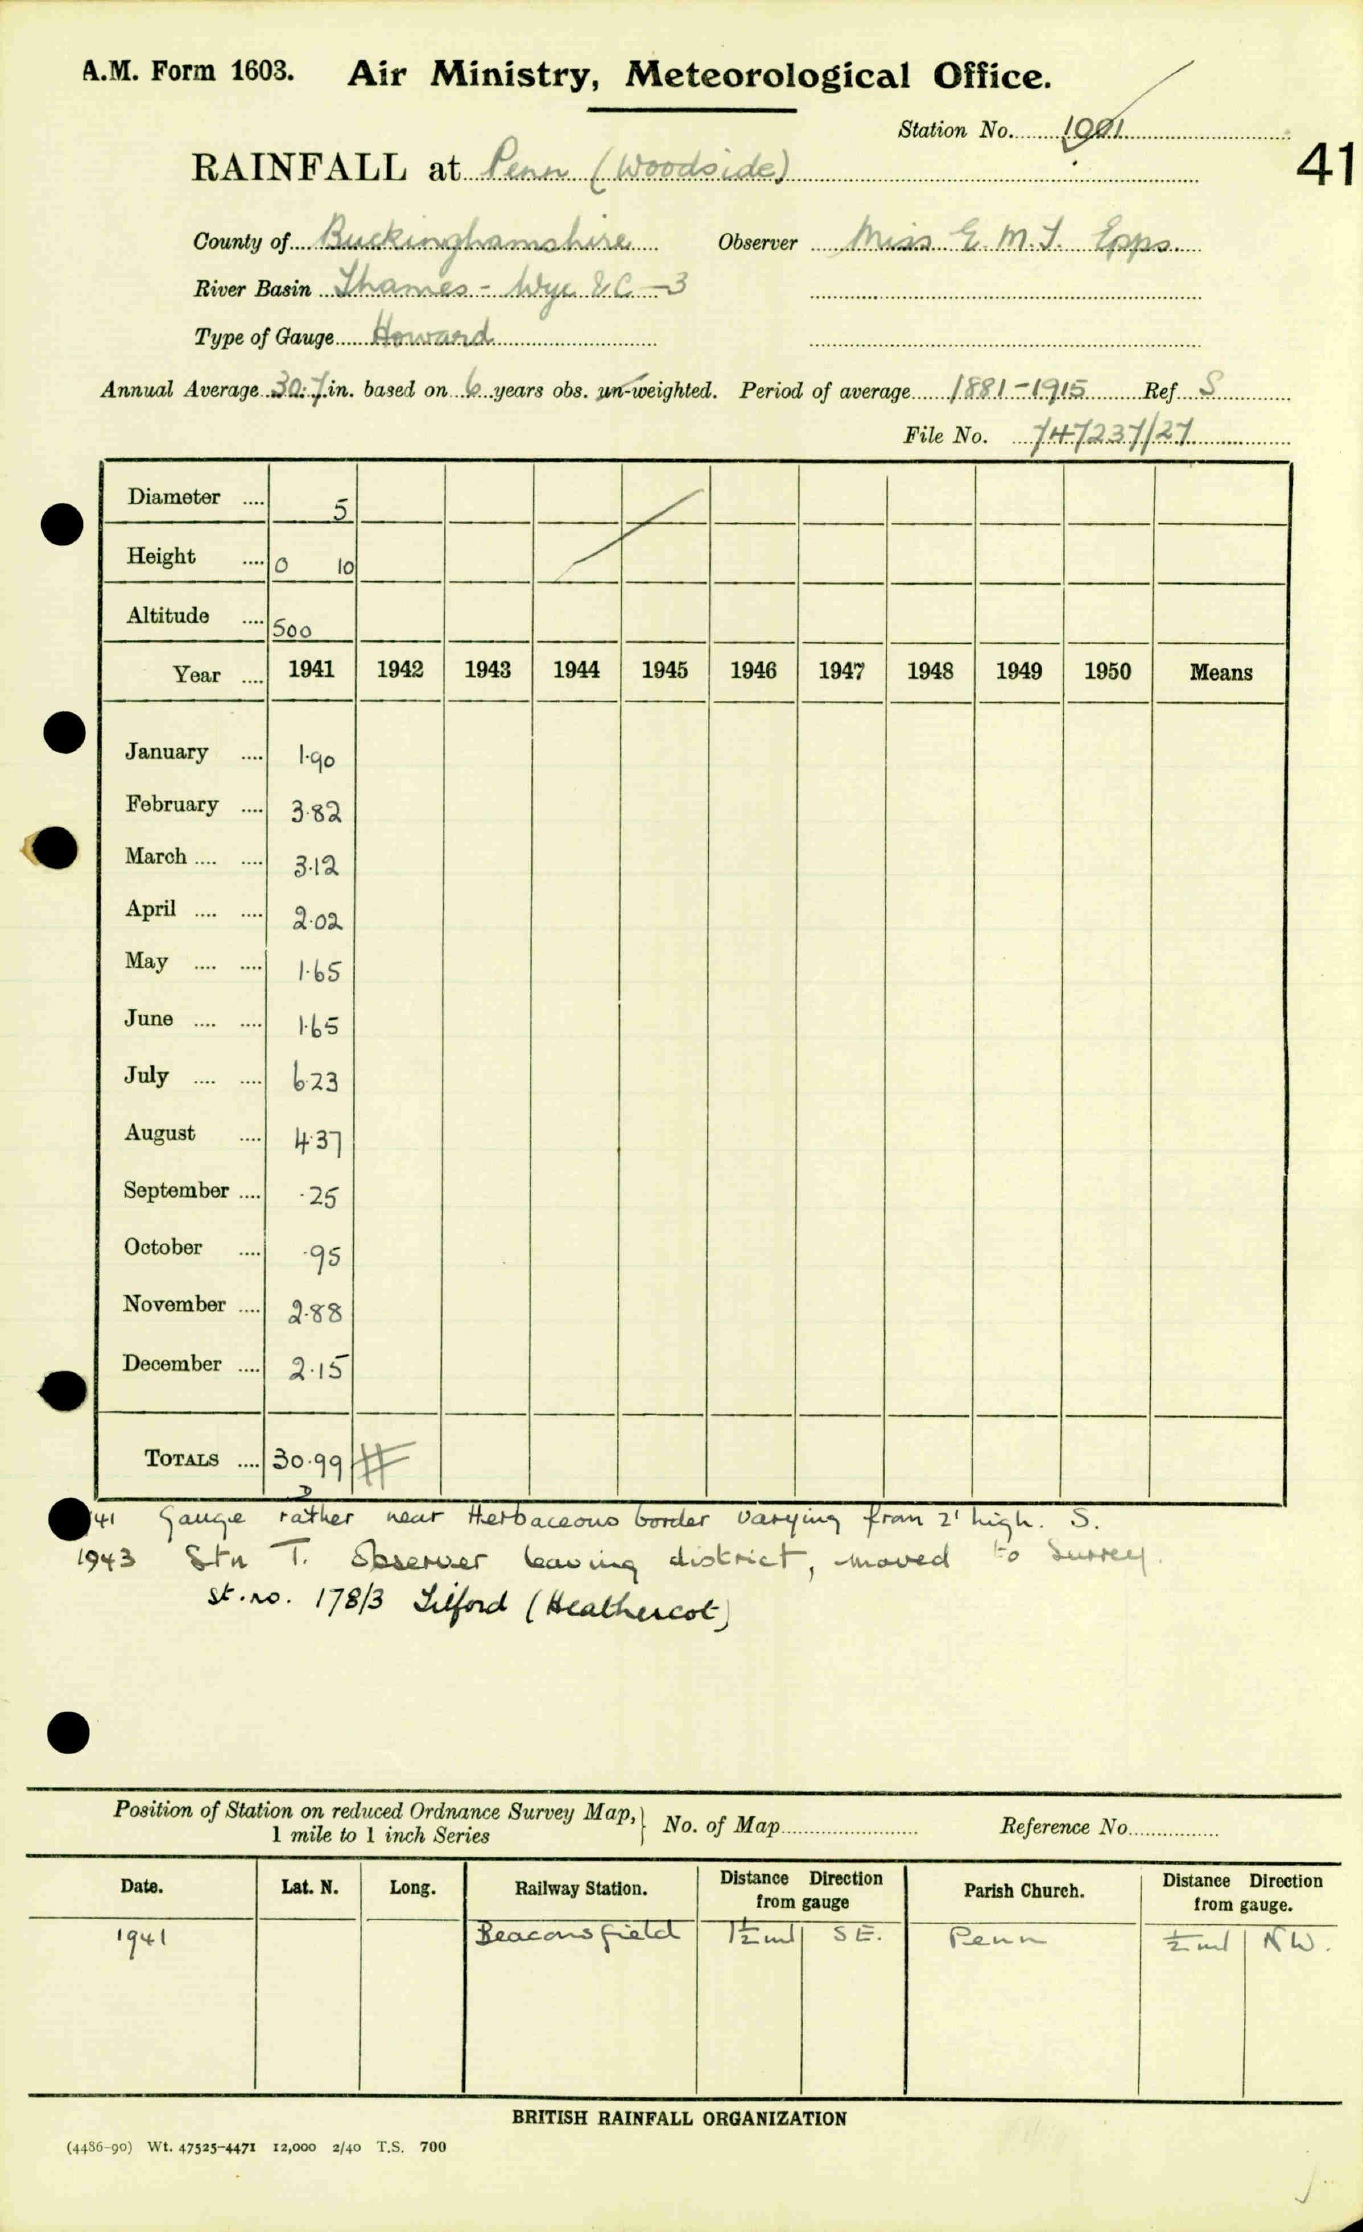 A.M. Form 1603. Air Ministry, Meteorological Office.
Station No. 1001
41
RAINFALL at Penn (Woodside)
County of Buckinghamshire Observer Miss E. M. J. Epps.
River Basin Thames - Wye &C - 3
Type of Gauge Howard
Annual Average 30.7 in. based on 6 years obs. un-weighted. Period of average 1881-1915 Ref S
File No. 747237/27
Diameter .... 5
Height .... 0 10
Altitude .... 500
Year .... 1941 1942 1943 1944 1945 1946 1947 1948 1949 1950 Means
January .... 1.90
February .... 3.82
March .... .... 3.12
April .... .... 2.02
May .... .... 1.65
June .... .... 1.65
July .... .... 6.23
August .... 4.37
September .... .25
October .... .95
November .... 2.88
December .... 2.15
TOTALS .... 30.99 #
41 Gauge rather near Herbaceous border varying from 2' high. S.
1943 Stn T. Observer leaving district, moved to Surrey.
st. no. 178/3 Tilford (Heathercot)
Position of Station on reduced Ordnance Survey Map, } No. of Map Reference No.
1 mile to 1 inch Series
Date. Lat. N. Long. Railway Station. Distance Direction from gauge Parish Church. Distance Direction from gauge.
1941 Beaconsfield 1½ ml SE. Penn ½ ml NW.
BRITISH RAINFALL ORGANIZATION
(4486-90) Wt. 47525-4471 12,000 2/40 T.S. 700